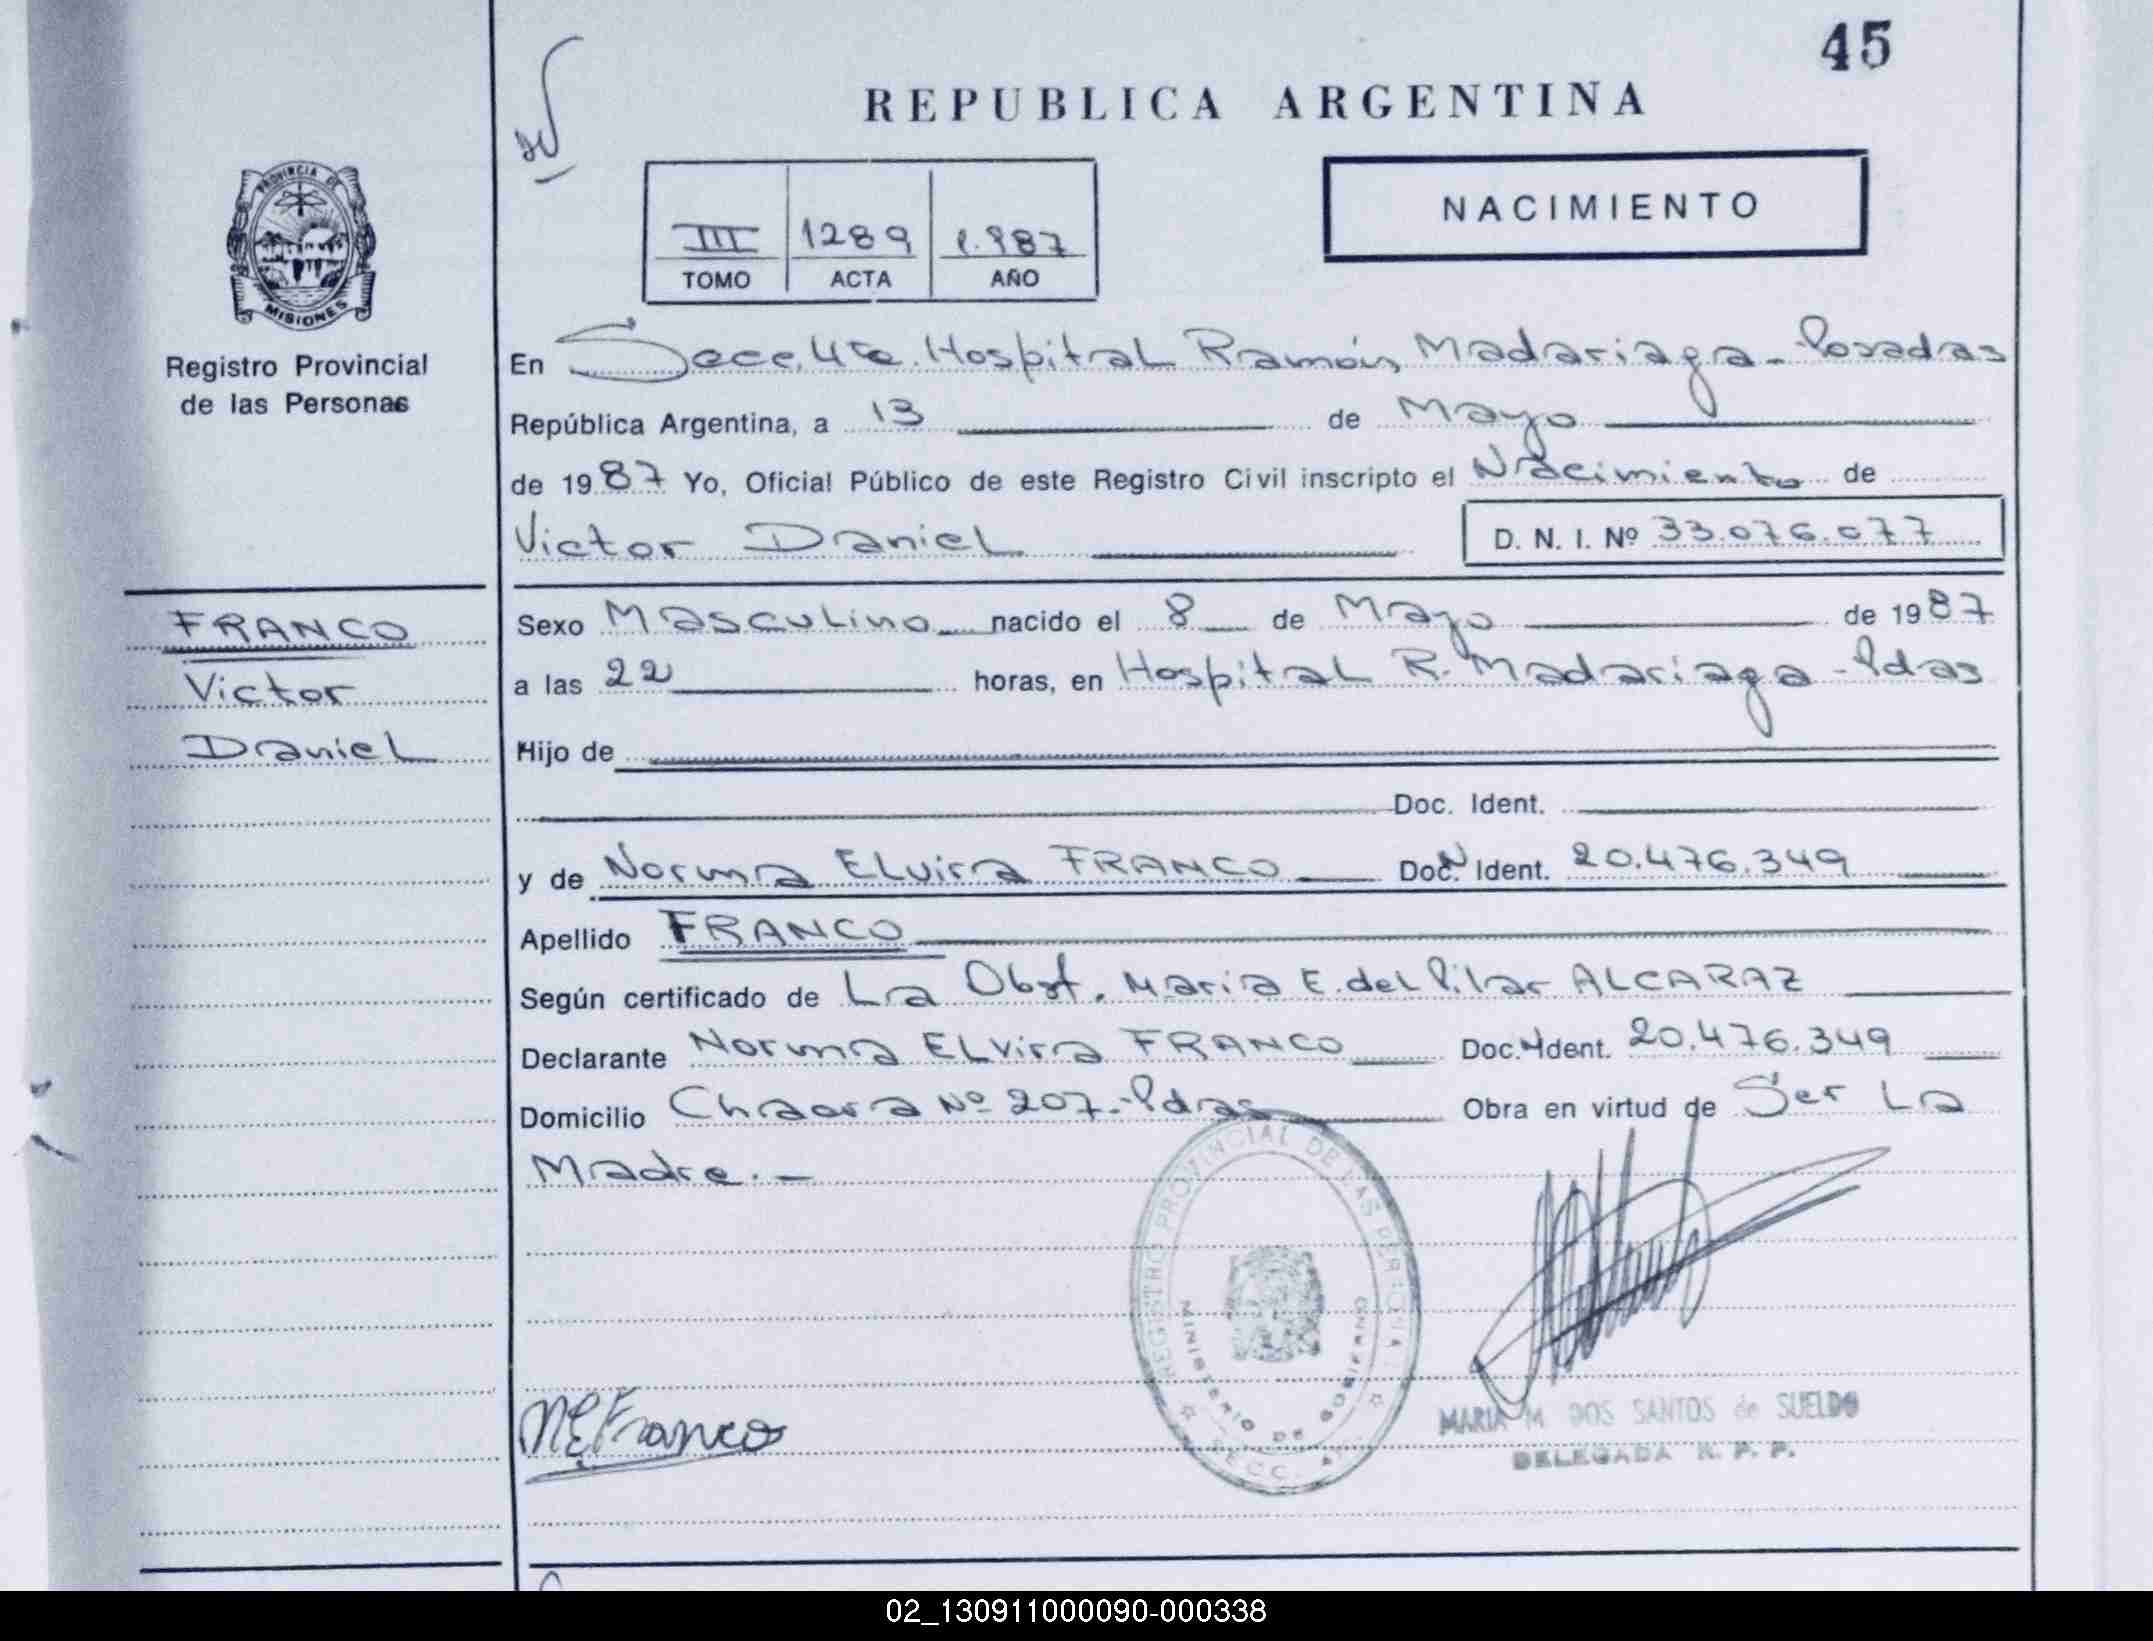 45
REPUBLICA ARGENTINA
NACIMIENTO
III 1289 1.987
TOMO ACTA AÑO
PROVINCIA DE
MISIONES
Registro Provincial
de las Personas
En Secc. 4ta. Hospital Ramón Madariaga - Posadas
República Argentina, a 13 de Mayo
de 1987 Yo, Oficial Público de este Registro Civil inscripto el Nacimiento de
Victor Daniel D. N. I. Nº 33.076.077
FRANCO
Victor
Daniel
Sexo Masculino nacido el 8 de Mayo de 1987
a las 22 horas, en Hospital R. Madariaga - Pdas
Hijo de
Doc. Ident.
y de Norma Elvira FRANCO Doc. N Ident. 20.476.349
Apellido FRANCO
Según certificado de La Obst. Maria E. del Pilar ALCARAZ
Declarante Norma Elvira FRANCO Doc. N Ident. 20.476.349
Domicilio Chacra Nº 207.- Pdas Obra en virtud de Ser La
Madre.-
REGISTRO PROVINCIAL DE LAS PERSONAS
MINISTERIO DE GOBIERNO
SECC. 4
N E Franco
MARIA M. DOS SANTOS de SUELDO
DELEGADA R. P. P.
02_130911000090-000338